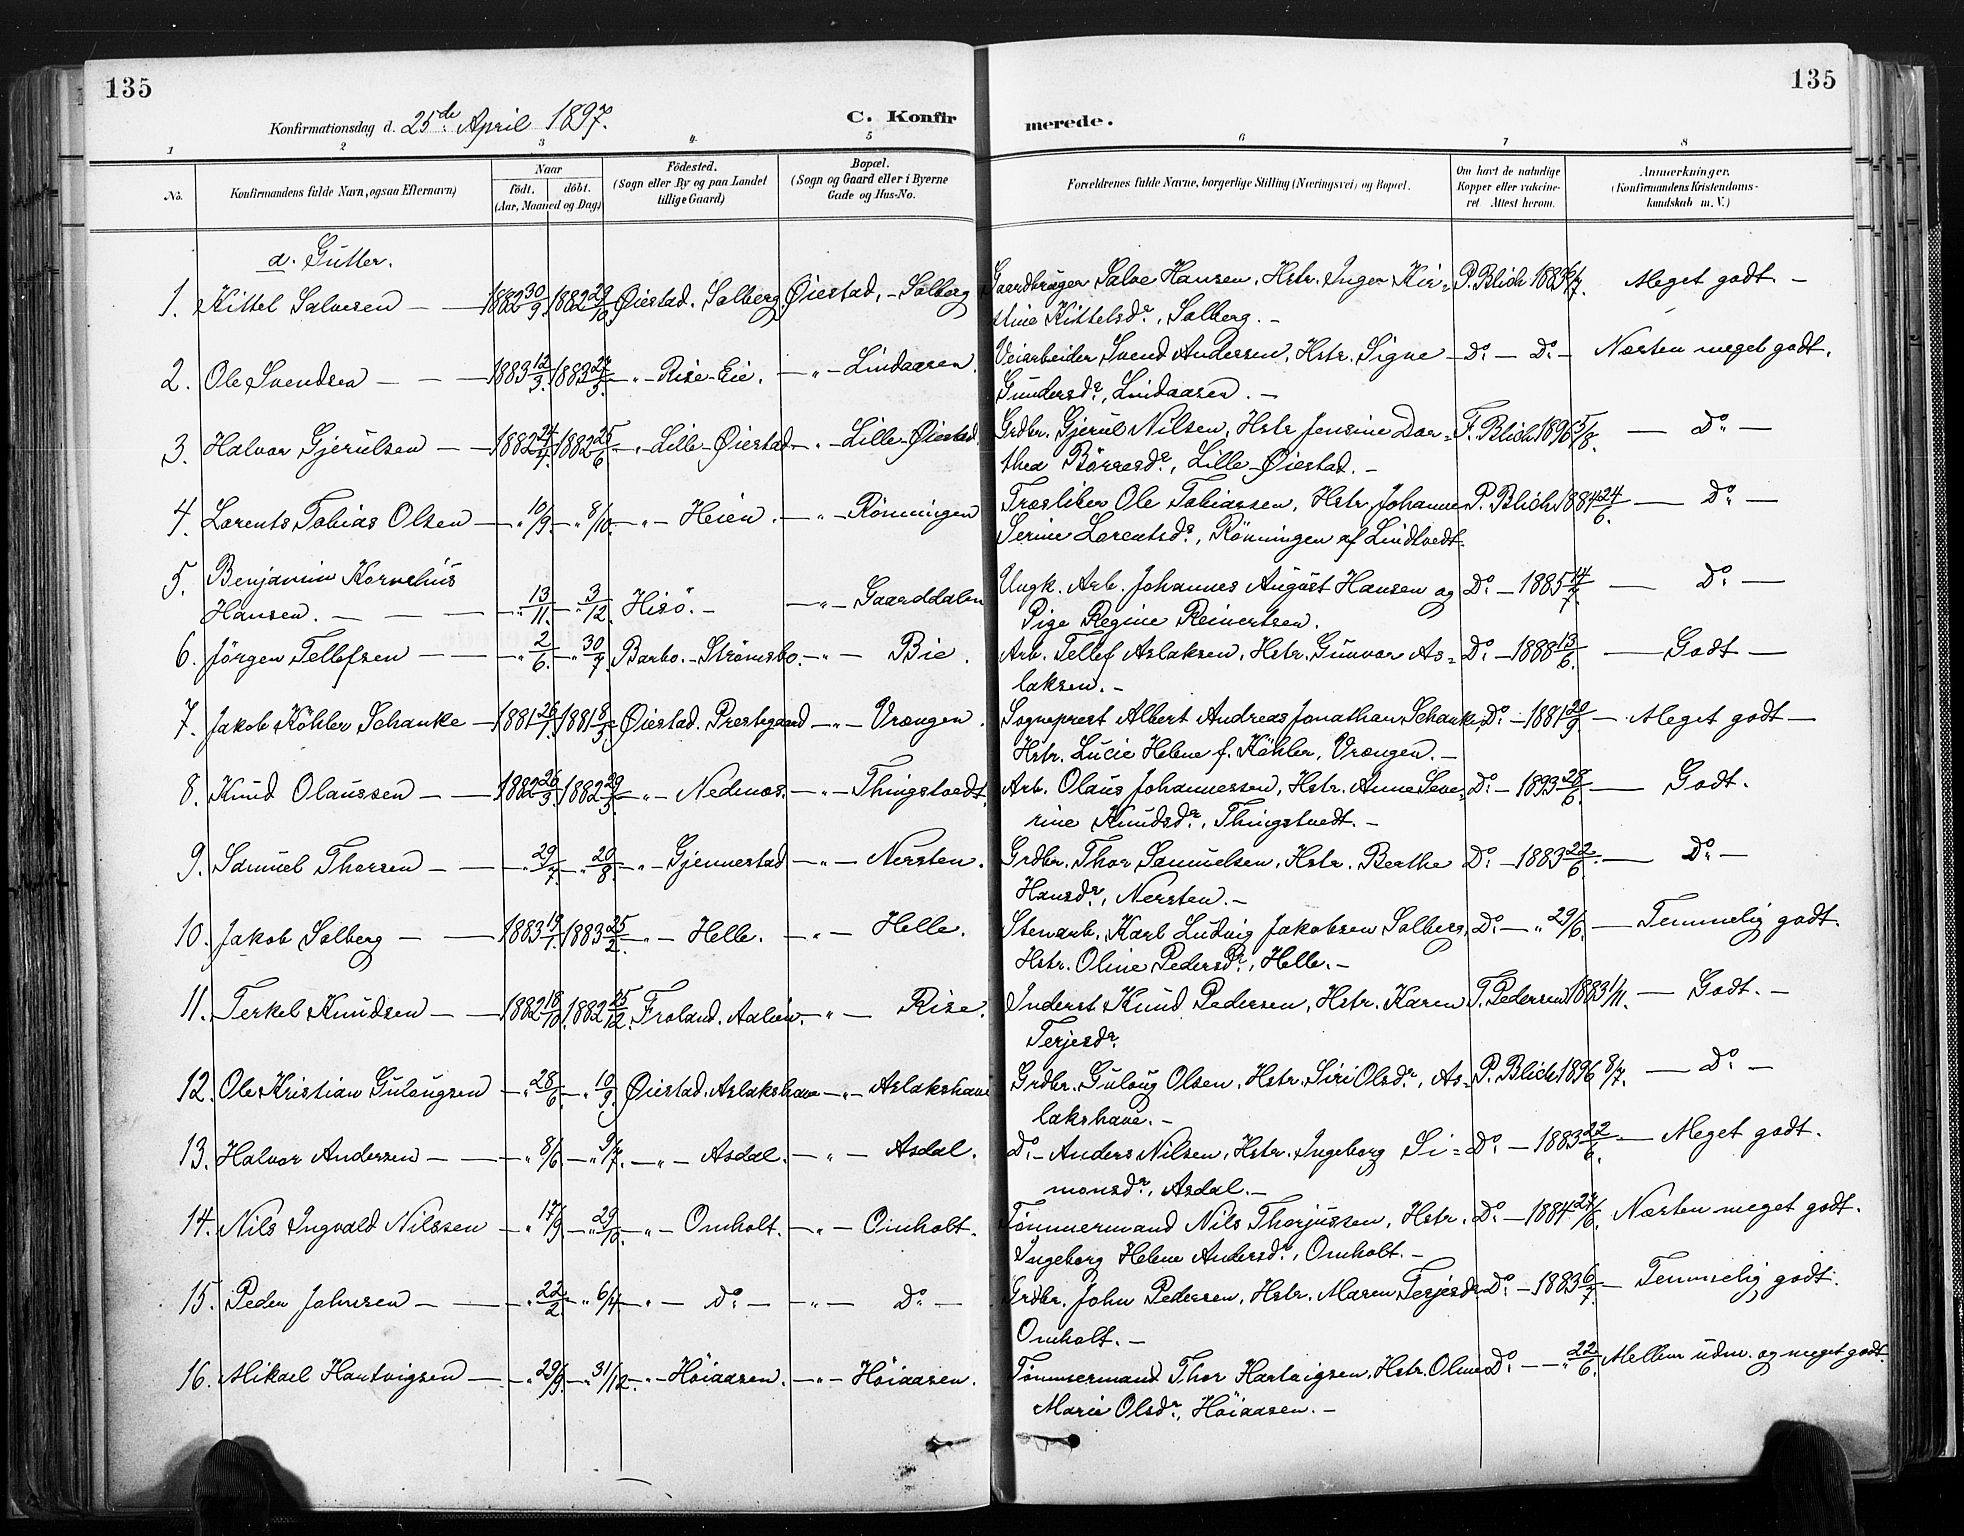 135
135
Konfirmationsdag d. 25de April 1897.
C. Konfir
merede.
1 2 3 4 5 6 7 8
No. Konfirmandens fulde Navn, ogsaa Efternavn) Naar födt. döbt. (Aar, Maaned og Dag) Födested. (Sogn eller By og paa Landet tillige Gaard) Bopæl. (Sogn og Gaard eller i Byerne Gade og Hus-No. Forældrenes fulde Navne, borgerlige Stilling (Næringsvei) og Bopæl. Om havt de naturlige Kopper eller vakcineret. Attest herom. Anmerkninger. (Konfirmandens Kristendomskundskab m. V.)
a. Gutter.
1. Kittel Salvesen — — 1882 30/9. 1882 29/10 Øiestad. Solberg Øiestad, - Solberg Gaardbruger Salve Hansen, Hstr. Inger Kir= P. Blich 1883 /7. Meget godt. —
stine Kittelsdr., Solberg. —
2. Ole Svendsen — — — 1883 12/3. 1883 27/3. — „ — Rise-Eie. — „ — Lindaasen. Veiarbeider Svend Andersen, Hstr. Signe — Do. — Do. — Næsten meget godt.
Gundersdr., Lindaasen. —
3. Halvor Gjerulsen — — 1882 24/4. 1882 25/6. „ - Lille-Øiestad — „ - Lille-Øiestad. Grdbr. Gjerul Nilsen, Hstr Jensine Dor= F. Blich 1896 5/8. — Do. —
thea Börresdr., Lille-Øiestad. —
4. Lorents Tobias Olsen — „ 10/9. — „ 8/10. — „ — Heien. — „ — Rönningen Træsliber Ole Tobiassen, Hstr. Johanne P. Blich 1884 24/6. — Do. —
Serine Lorentsdr., Rönningen af Lindtvedt.
5. Benjamin Kornelius
Hansen. — — — „ 13/11. — „ 3/12. Hisö. — — „ — Gaarddalen Ungk. Arb. Johannes August Hansen og Do. — 1885 14/7. — Do. —
Pige Regine Reinertsen.
6. Jörgen Tellefsen — — — „ 2/6. — „ 30/7. Barbo. - Strömsbo. — „ — Bie. Arb. Tellef Aslaksen, Hstr. Gunvor As= Do. — 1888 13/6. — Godt —
laksen. —
7. Jakob Köhler Schanke — 1881 26/1. 1881 8/3. Øiestad. Prestegaard — „ — Vrængen. Sogneprest Albert Andreas Jonathan Schanke, Do. — 1881 29/9. — Meget godt —
Hstr. Lucie Helene f. Köhler, Vrængen. —
8. Knud Olaussen — — 1882 26/3. 1882 29/5. — „ — Nedenæs. — „ — Thingstvedt. Arb. Olaus Johannessen, Hstr. Anne Seve= Do. — 1893 28/6. — Godt.
rine Knudsdr., Thingstvedt. —
9. Samuel Thorsen — — — „ 29/7. — „ 20/8. — „ - Gjennestad — „ — Nersten. Grdbr. Thor Samuelsen, Hstr. Berthe Do. — 1883 22/6. — Do. —
Hansdr., Nersten. —
10. Jakob Solberg — — 1883 19/1. 1883 25/2. — „ — Helle. — „ — Helle. Stenarb. Karl Ludvig Jakobsen Solberg, Do. — „ 29/6. — Temmelig godt.
Hstr. Oline Pedersdr., Helle. —
11. Terkel Knudsen — — 1882 18/10. 1882 25/12. Froland. — „ — Rise. Inderst Knud Pedersen, Hstr. Karen T. Pedersen 1883 1/11. — Godt. —
Terjesdr.
12. Ole Kristian Gulaugsen — „ 28/6. — „ 10/9. Øiestad. Aslakshave — „ — Aslakshave Grdbr. Gulaug Olsen, Hstr. Siri Olsdr., As= P. Blich 1896 8/7. — Do. —
lakshave. —
13. Halvor Andersen — — — „ 8/6. — „ 9/7. — „ — Asdal. — „ — Asdal. Do. — Anders Nilsen, Hstr. Ingeborg Si= Do. — 1883 22/6. — Meget godt.
monsdr., Asdal. —
14. Nils Ingvald Nilssen — „ 17/9. — „ 29/10. — „ — Omholt. — „ — Omholt. Tömmermand Nils Thorjussen, Hstr. Do. — 1884 27/6. Næsten meget godt.
Ingeborg Helene Andersdr., Omholt. —
15. Peder Johnsen — — — „ 22/2. — „ 6/4. — „ — Do. — — „ — Do. — Grdbr. John Pedersen, Hstr. Maren Terjesdr. Do. — 1883 6/7. — Temmelig godt.
Omholt. —
16. Mikael Hartvigsen — — „ 29/9. — „ 31/12. — „ - Höiaasen. — „ — Höiaasen. Tömmermand Thor Hartvigsen, Hstr. Oline Do. — „ 22/6. Mellem udm. og meget godt.
Marie Olsdr., Höiaasen. —